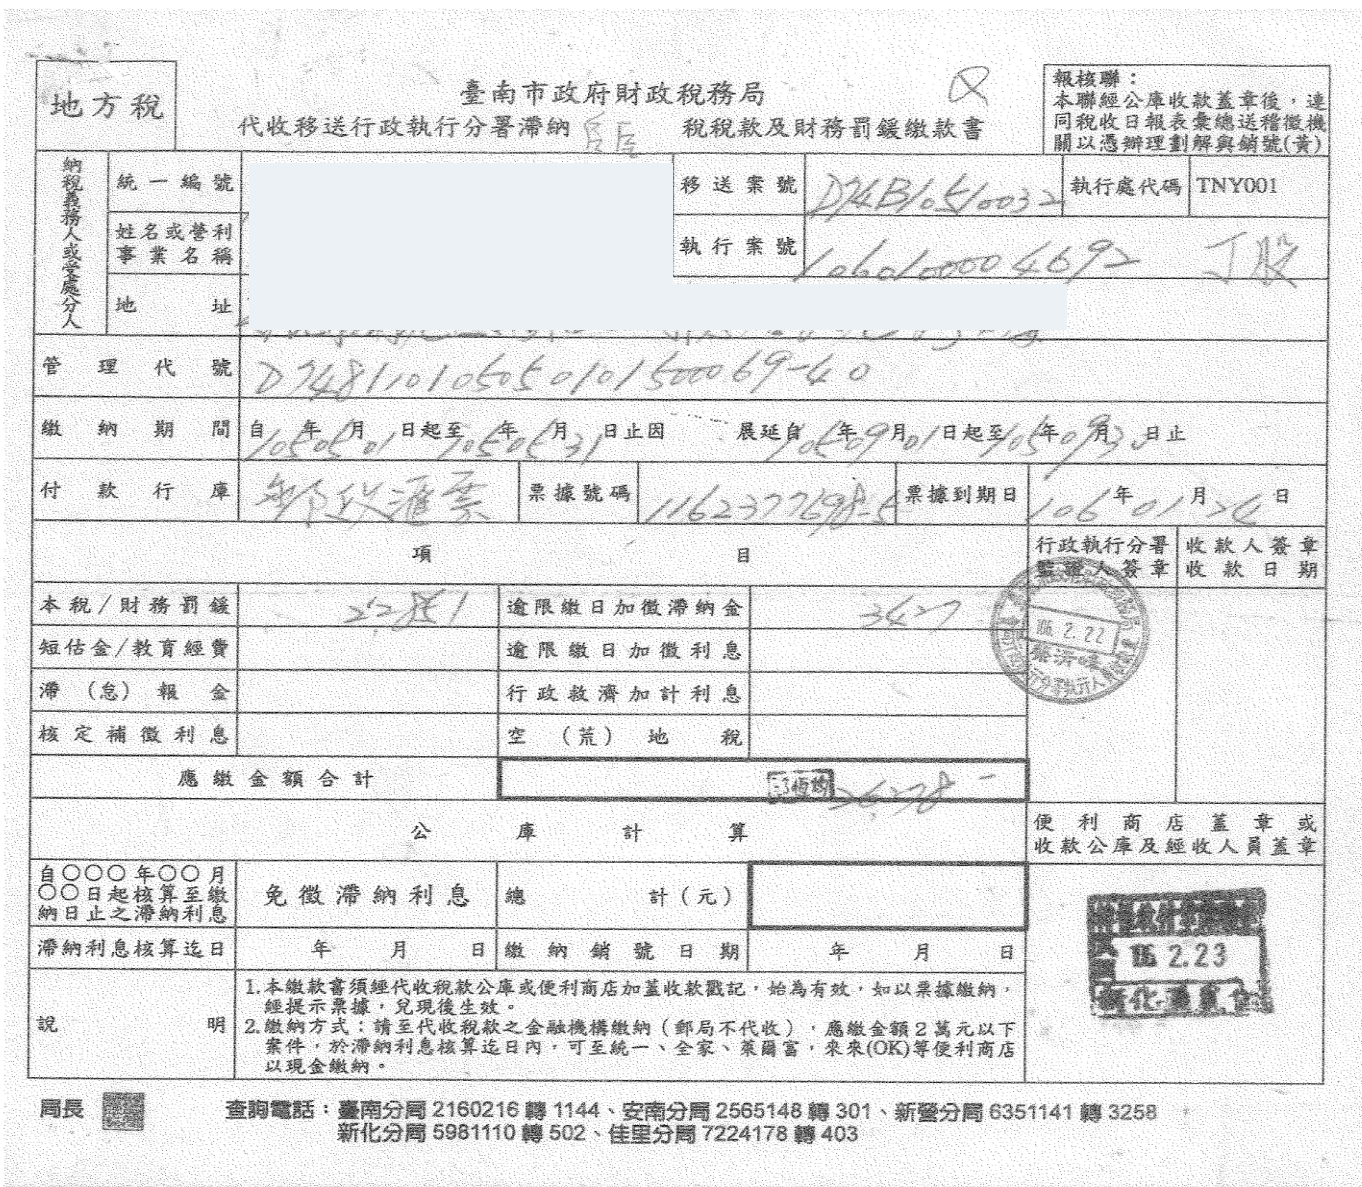 地方稅
臺南市政府財政稅務局
代收移送行政執行分署滯納 房屋 稅稅款及財務罰鍰繳款書
報核聯：
本聯經公庫收款蓋章後，連
同稅收日報表彙總送稽徵機
關以憑辦理劃解與銷號(黃)
納稅義務人或受處分人
統一編號
移送案號 D74B10510032 執行處代碼 TNY001
姓名或營利
事業名稱
執行案號 10601000004692 丁股
地址
管理代號 D748110105050101500069-40
繳納期間 自105年05月01日起至105年05月31日止因 展延自105年09月01日起至105年09月30日止
付款行庫 郵政匯票 票據號碼 1162377698-5 票據到期日 106年01月24日
項目
行政執行分署
監證人簽章
收款人簽章
收款日期
本稅/財務罰鍰 22851 逾限繳日加徵滯納金 3427
短估金/教育經費 逾限繳日加徵利息
滯(怠)報金 行政救濟加計利息
核定補徵利息 空(荒)地稅
106.2.22
應繳金額合計 26,278-
公庫計算
便利商店蓋章或
收款公庫及經收人員蓋章
自○○○年○○月
○○日起核算至繳
納日止之滯納利息
免徵滯納利息 總計(元)
滯納利息核算迄日 年 月 日 繳納銷號日期 年 月 日
106.2.23
說明
1.本繳款書須經代收稅款公庫或便利商店加蓋收款戳記，始為有效，如以票據繳納，
經提示票據，兌現後生效。
2.繳納方式：請至代收稅款之金融機構繳納（郵局不代收），應繳金額2萬元以下
案件，於滯納利息核算迄日內，可至統一、全家、萊爾富，來來(OK)等便利商店
以現金繳納。
局長
查詢電話：臺南分局 2160216 轉 1144、安南分局 2565148 轉 301、新營分局 6351141 轉 3258
新化分局 5981110 轉 502、佳里分局 7224178 轉 403